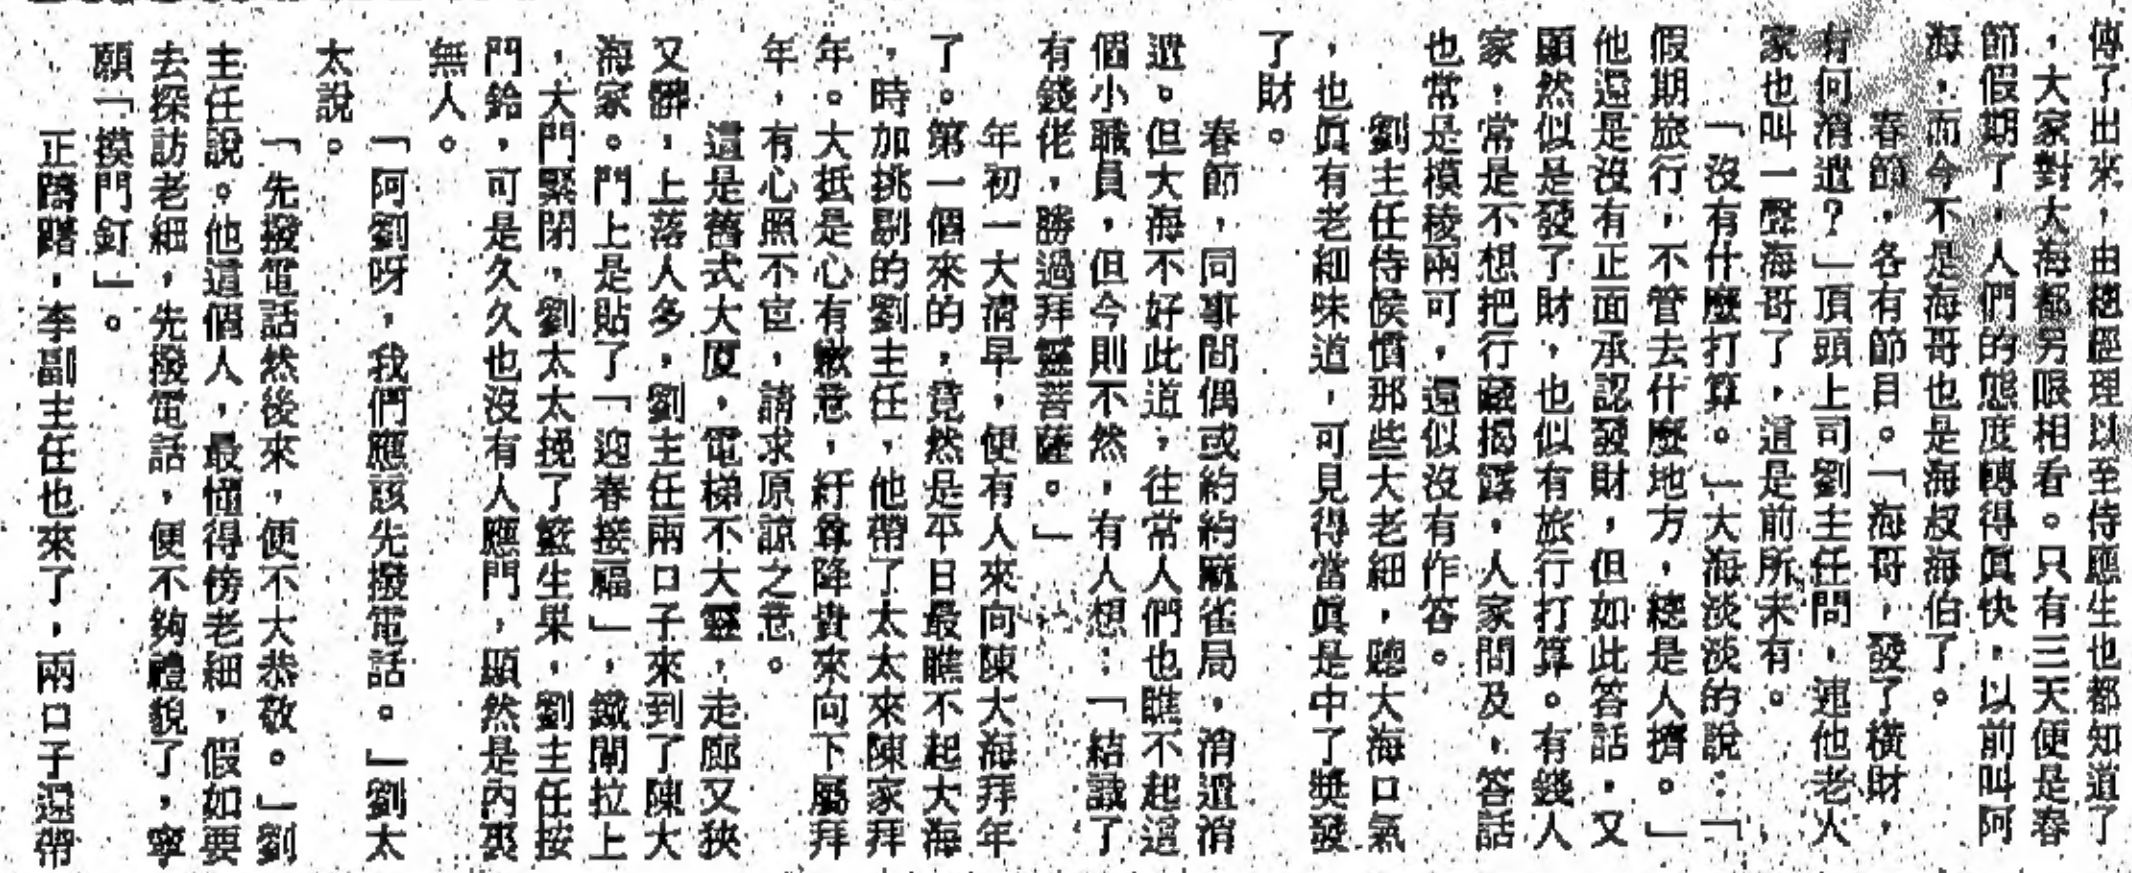 傳了出來，由總經理以至侍應生也都知道了
，大家對大海都另眼相看。只有三天便是春
節假期了，人們的態度轉得眞快，以前叫阿
海，而今不是海哥也是海叔海伯了。
春節，各有節目。「海哥，發了橫財，
有何消遣？」頂頭上司劉主任問，連他老人
家也叫一聲海哥了，這是前所未有。
「沒有什麼打算。」大海淡淡的說：「
假期旅行，不管去什麼地方，總是人擠。」
他還是沒有正面承認發財，但如此答話，又
顯然似是發了財，也似有旅行打算。有錢人
家，常是不想把行藏揭露，人家問及，答話
也常是模稜兩可，還似沒有作答。
劉主任侍侯慣那些大老細，聽大海口氣
，也眞有老細味道，可見得當眞是中了獎發
了財。
春節，同事間偶或約約麻雀局，消遣消
遣。但大海不好此道，往常人們也瞧不起這
個小職員，但今則不然，有人想：「結識了
有錢佬，勝過拜靈菩薩。」
年初一大清早，便有人來向陳大海拜年
了。第一個來的，竟然是平日最瞧不起大海
，時加挑剔的劉主任，他帶了太太來陳家拜
年。大抵是心有歉意，紆尊降貴來向下屬拜
年，有心照不宣，請求原諒之意。
這是舊式大廈，電梯不大靈，走廊又狹
又髒，上落人多，劉主任兩口子來到了陳大
海家。門上是貼了「迎春接福」，鐵閘拉上
，大門緊閉，劉太太挽了籃生果，劉主任按
門鈴，可是久久也沒有人應門，顯然是內裏
無人。
「阿劉呀，我們應該先撥電話。」劉太
太說。
「先撥電話然後來，便不大恭敬。」劉
主任說。他這個人，最懂得傍老細，假如要
去探訪老細，先撥電話，便不夠禮貌了，寧
願「摸門釘」。
正躊躇，李副主任也來了，兩口子還帶